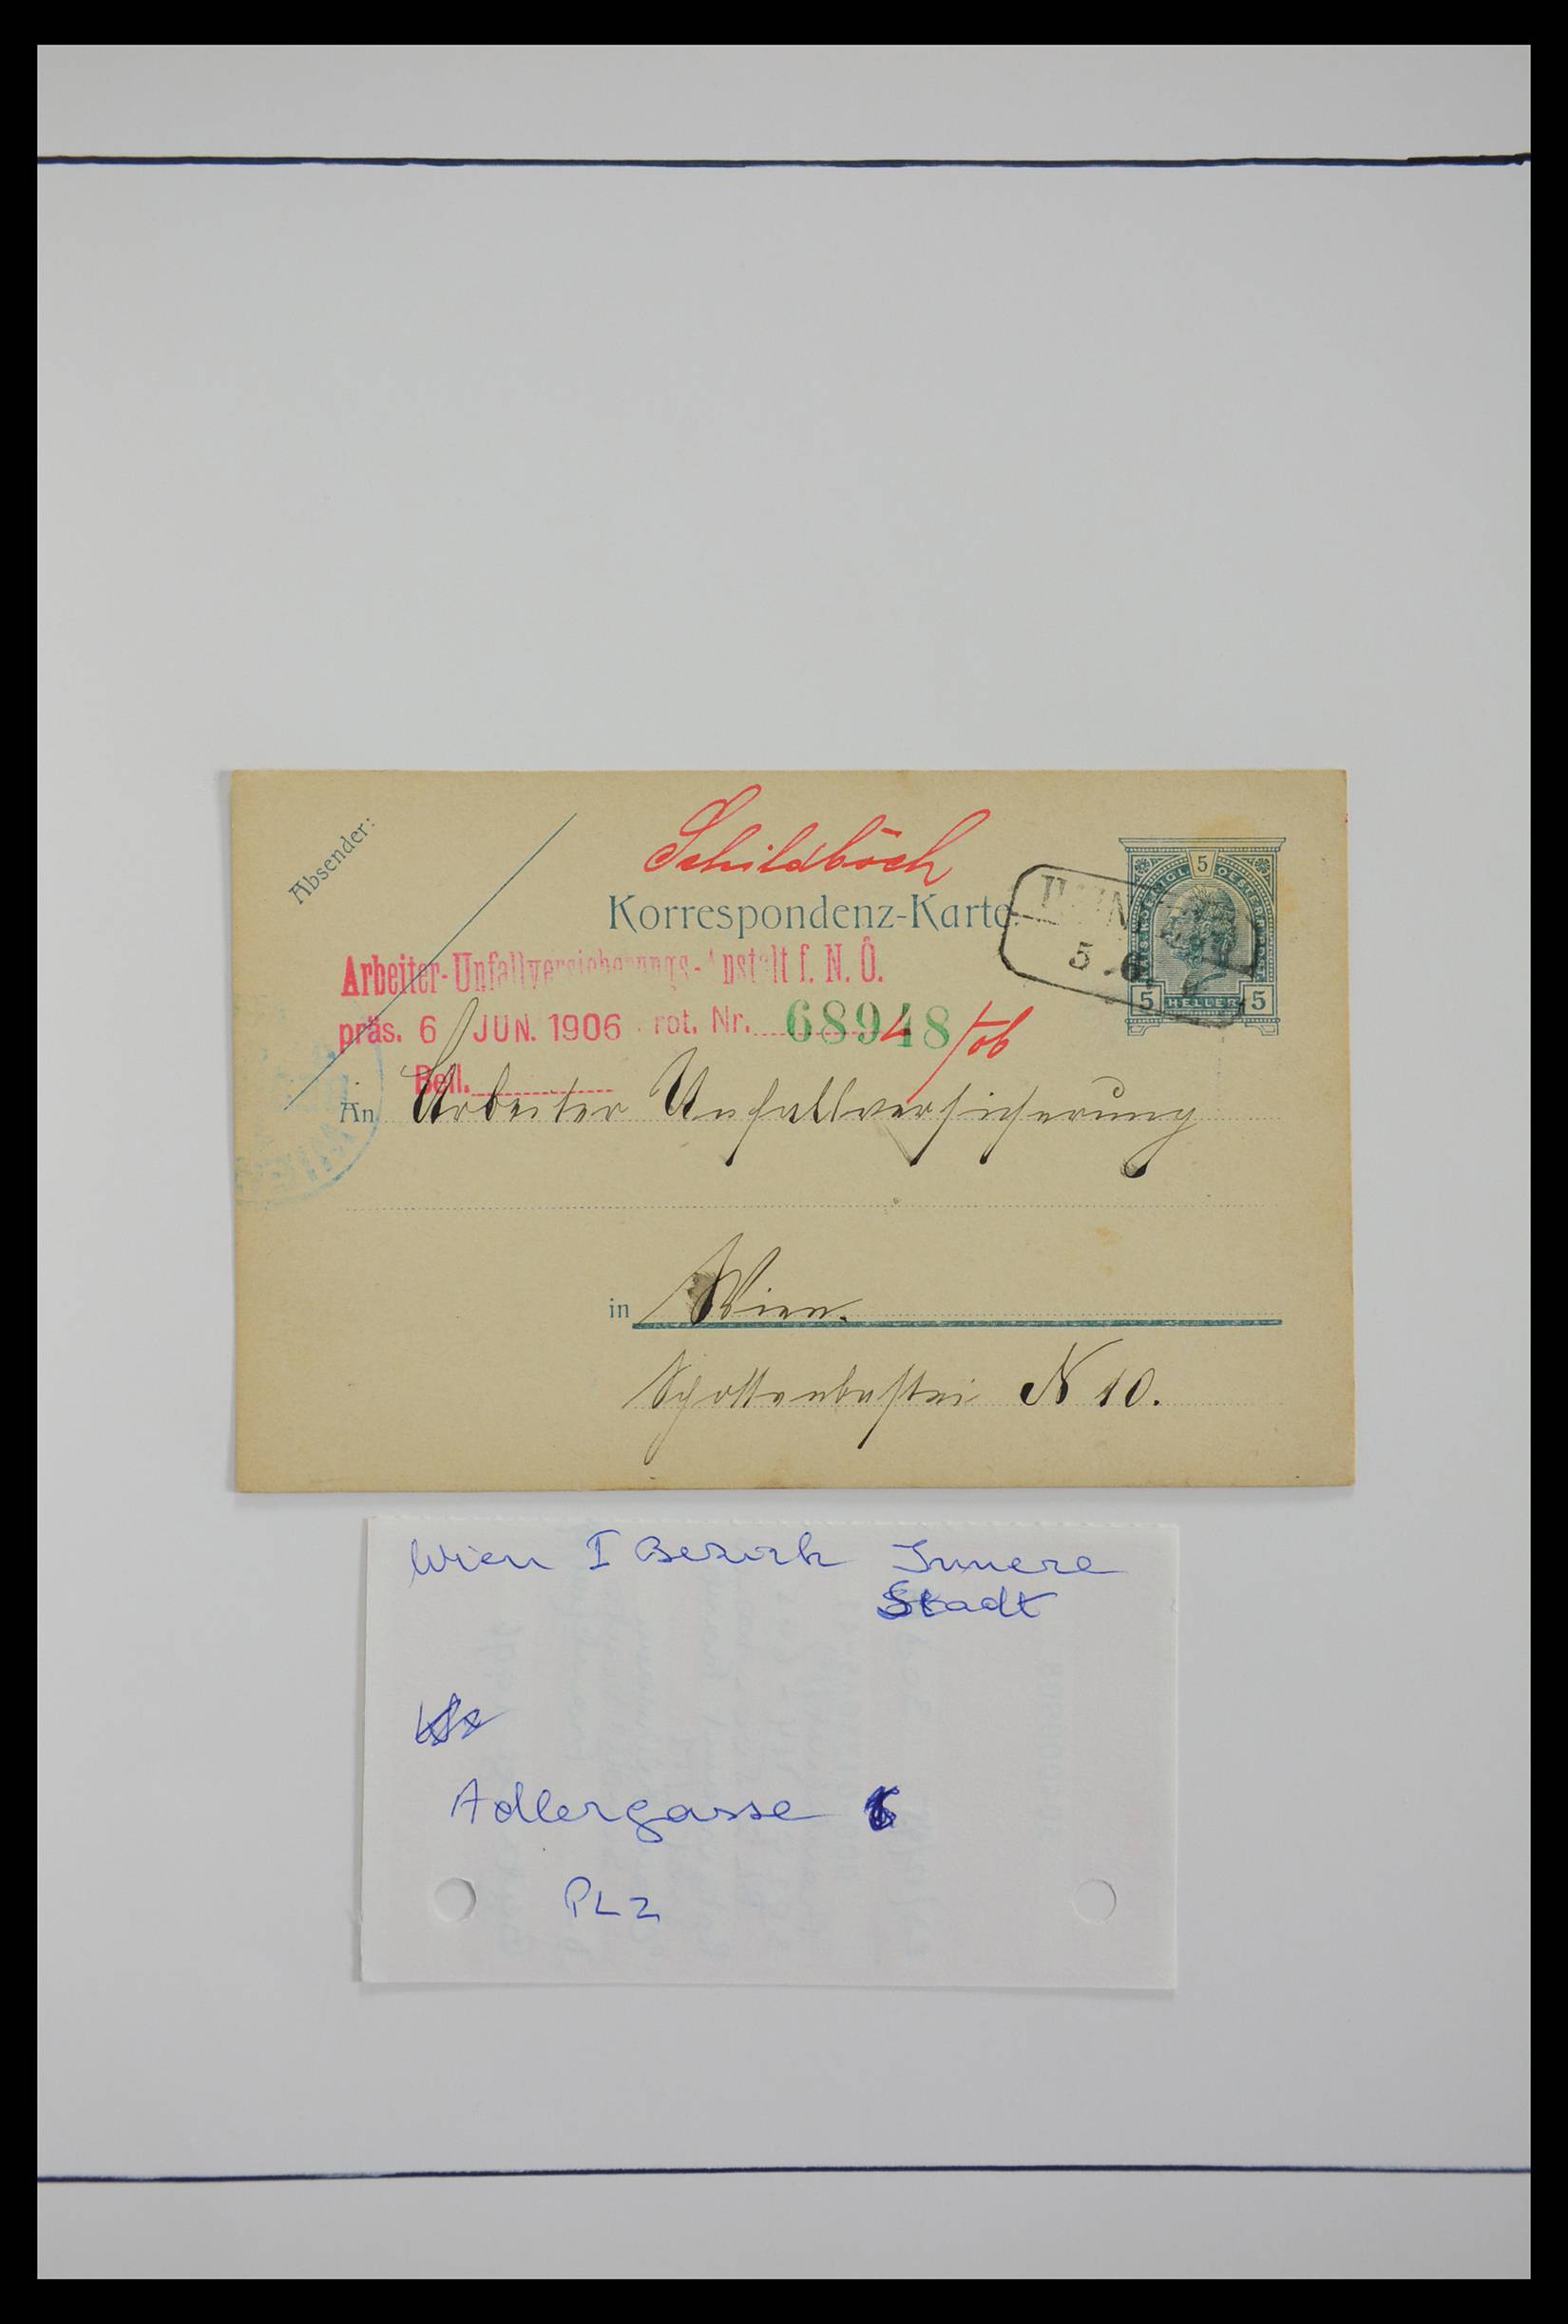 Absender:
Schildböck
Korrespondenz-Karte.
5
KAIS. KÖNIGL. OESTERR. POST.
5 HELLER 5
5
Arbeiter-Unfallversicherungs-Anstalt f. N. Ö.
präs. 6 JUN. 1906 rot. Nr. 68948 /06
Beil.
An Arbeiter Unfallversicherung
in Wien.
Schottenbastei N 10.
Wien I Bezirk Innere
Stadt
Adlergasse
PLZ